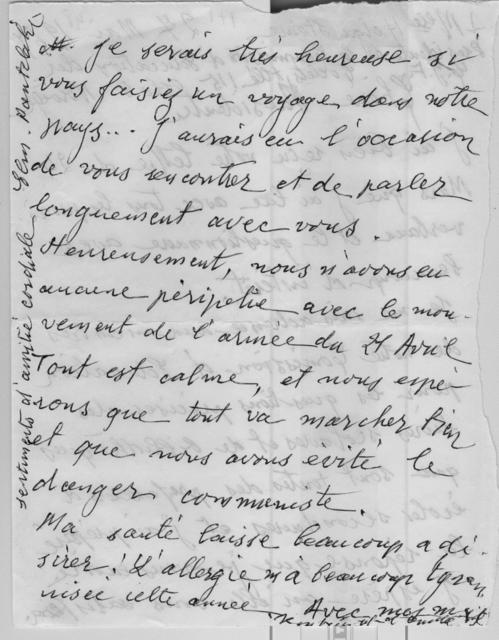 je serais très heureuse si
vous faisiez un voyage dans notre
pays... J'aurais eu l'occasion
de vous rencontrer et de parler
longuement avec vous.
Heureusement, nous n'avons eu
aucune péripetie avec le mou-
vement de l'armée du 21 Avril
Tout est calme, et nous espé-
rons que tout va marcher bien
et que nous avons évité le
danger communiste.
Ma santé laisse beaucoup a dé-
sirer! L'allergie m'a beaucoup tyran
nisée cette année. Avec mes
sentiments d'amitié cordiale